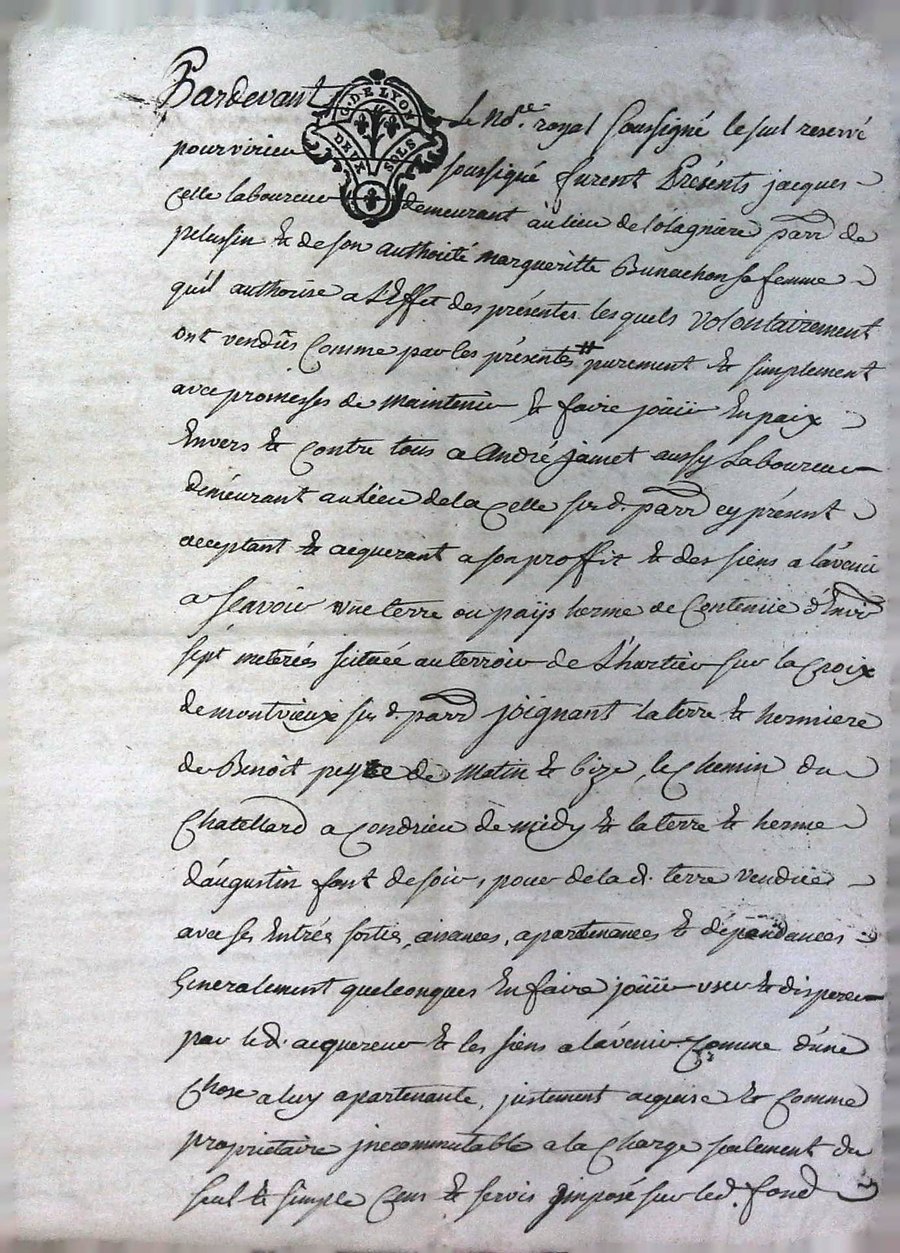 Pardevant Le No.re royal soussigné le seul reservé
G. DE LYON
DEUX SOLS
pour virieu soussigné furent Présents jacques
Celle laboureur demeurant au lieu de parr de
pelussin & de son authorité margueritte Bunachon sa femme
qu'il authorise a l'Effet des présentes lesquels volontairement
ont vendus Comme par les présentes # purement & simplement
avec promesses de maintenir & faire joüir En paix
Envers & Contre tous a André jamet aussy Laboureur
deméurant au Lieu de la Celle sus d. parr cy présent
acceptant & aiquerant a son proffit & des siens a l'avenir
a sçavoir une terre ou païs herme de Contenüe d'Envir
sept meterés scituée au terroir de L'hartier sur la Croix
de montvieux sus d. parr joignant la terre & hermiere
de Benoit de matin & bize, le Chemin du
Chatellard a Condrieu de midy & la terre & herme
d'augustin font de soir, pour de la d. terre vendüe
avec ses Entrés sortis, aisances, apartenances & dépendances
Generalement quelconques En faire joüir user & disposer
par le d. acquereur & les siens a l'avenir Comme d'une
Chose a luy apartenante, justement aquise & Comme
propriétaire jncommutable a la Charge seulement du
seul & simple Cens & servis jmposé sur led. fond